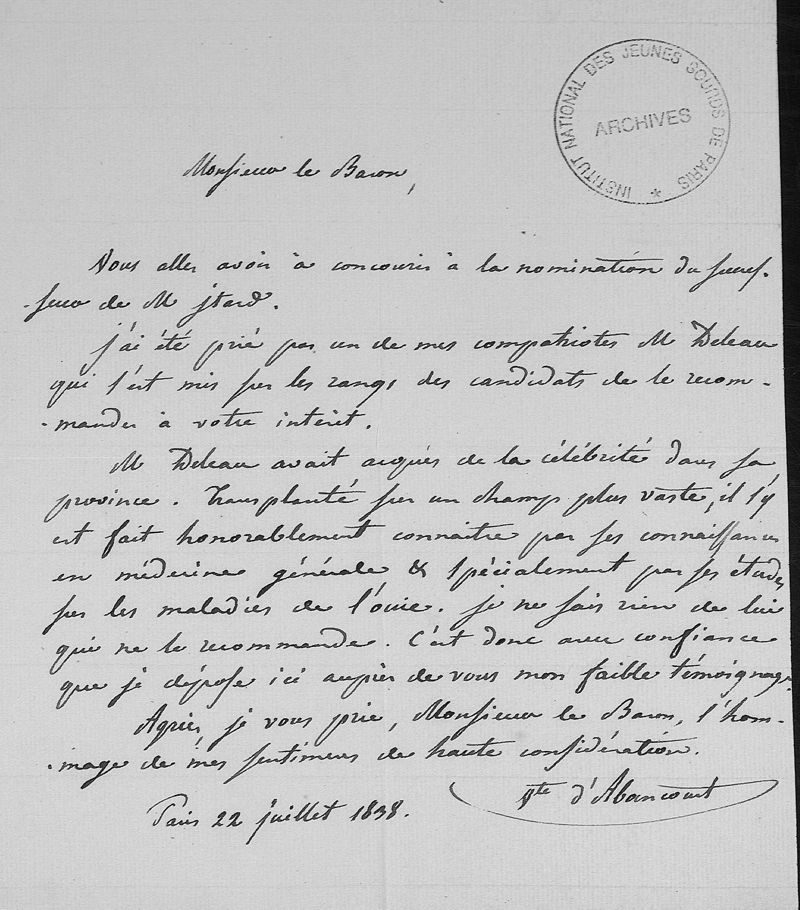 INSTITUT NATIONAL DES JEUNES SOURDS DE PARIS *
ARCHIVES
Monsieur le Baron,
Vous allez avoir à concourir à la nomination du succes-
-seur de M Itard.
J'ai été prié par un de mes compatriotes M Deleau
qui s'est mis sur les rangs des candidats de le recom-
-mander à votre intérêt.
M Deleau avait acquis de la célébrité dans sa
province. Transplanté sur un champ plus vaste, il s'y
est fait honorablement connaitre par ses connaissances
en médecine générale & spécialement par ses études
sur les maladies de l'ouie. Je ne sais rien de lui
qui ne le recommande. C'est donc avec confiance
que je dépose ici auprès de vous mon faible témoignage.
Agréez, je vous prie, Monsieur le Baron, l'hom-
-mage de mes sentimens de haute considération.
Vte d'Abancourt
Paris 22 juillet 1838.